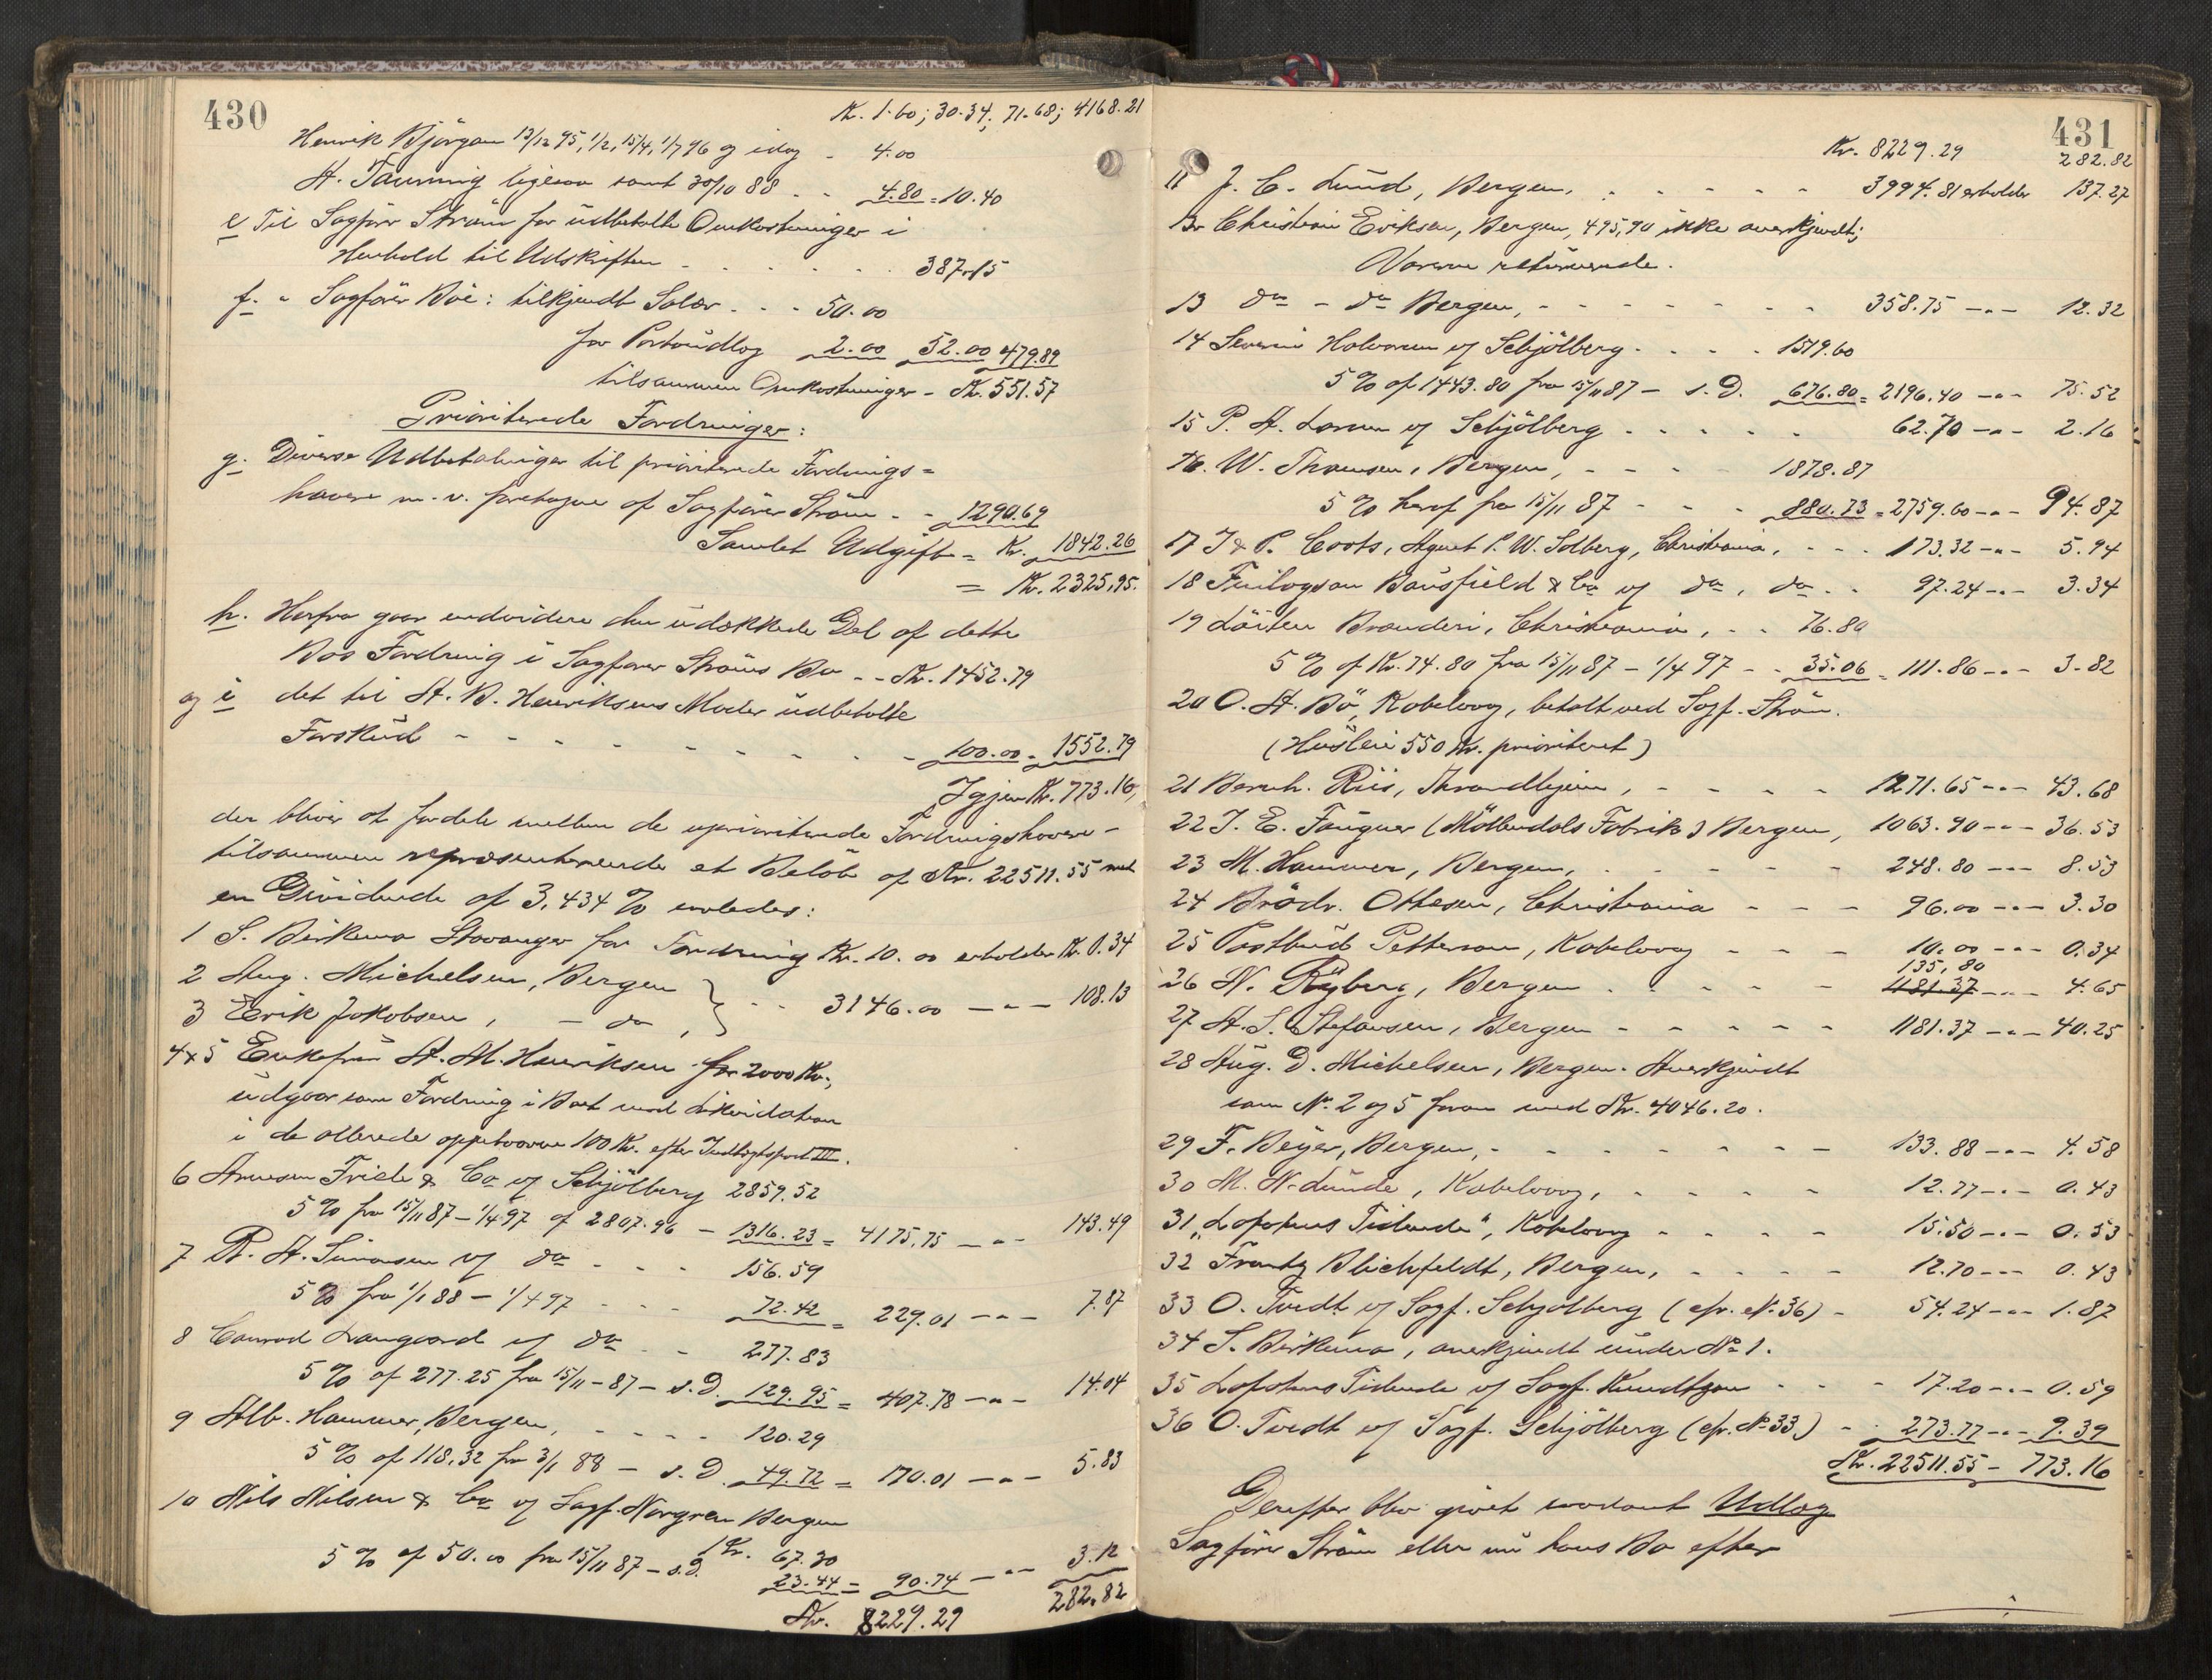 430
Kr. 1.60; 30.34; 71.68; 4168.21
Henrik Bjørgan 13/12 95, 1/2, 15/4, 1/7 96 og idag - 4.00
A. Tanning ligesaa samt 30/10 88 - - 4.80 = 10.40
e Til Sagfører Strøm for udbetalte Omkostninger i
Henhold til Udskriften - - - - - - 387.15
f. " Sagfører Bøe: tilkjendt Salær - - - 50.00
for Portoudlæg 2.00 52.00 479.89
tilsammen Omkostninger - Kr. 551.57
Prioriterede Fordringer:
g. Diverse Udbetalinger til prioriterede Fordrings=
havere m.v. foretagne af Sagfører Strøm - - 1290.69
Samlet Udgift = Kr. 1842.26
= Kr. 2325,95.
h. Herfra gaar endvidere den udækkede Del af dette
Bos Fordring i Sagfører Strøms Bo - - Kr. 1452.79
og i det til A. B. Henriksens Moder udbetalte
Forskud - - - - - - - - 100.00 = 1552.79
Igjen Kr. 773.16,
der bliver at fordele mellem de uprioriterede Fordringshavere -
tilsammen repræsenterende et Beløb af Kr. 22511.55 med
en Dividende af 3,434 % saaledes:
1 S. Birkemo Stavanger for Fordring Kr. 10.00 erholder Kr. 0.34
2 Aug. Michelsen, Bergen } - - 3146.00 - " - 108.13
3 Erik Jakobsen, - do ,
4 x 5 Enkefru A. M. Henriksen for 2000 Kr.,
udgaar som Fordring i Boet mod Likvidation
i de allerede oppebaarne 100 Kr. efter Indtægtspost III.
6 Arnesen Friele & Co v/ Schjølberg 2859.52
5 % fra 15/11 87 - 1/4 97 af 2807.96 - 1316.23 = 4175,75 - " - 143.49
7 R. A. Simonsen v/ do - - - 156.59
5 % fra 1/1 88 - 1/4 97 - - - 72.42 = 229.01 - " - 7.87
8 Conrad Langaard v/ do - - 277.83
5 % af 277.25 fra 15/11 - 87 - s.D. 129.95 = 407.78 - " - 14.04
9 Alb. Hammer, Bergen, - - - - 120.29
5 % af 118,32 fra 3/1 88 - s.D. 49.72 = 170.01 - " - 5.83
10 Nils Nilsen & Co v/ Sagf. Norgren Bergen
Kr. 67.30
5 % af 50.00 fra 15/11 87 - s.D. 23.44 = 90.74 - " - 3.12
Kr. 8229.29 282.82
431
Kr. 8229.29 282.82
11 J. C. Lund, Bergen, - - - - - 3994.81 erholder 137.27
12 Christian Eriksen, Bergen, 495,90 ikke anerkjendt;
Varerne returnerede.
13 do - do Bergen, - - - - - - - 358.75 - " - 12.32
14 Severin Halvorsen v/ Schjølberg - - - - 1519.60
5 % af 1443.80 fra 15/11 87 - s.D. 676.80 = 2196.40 - " - 75.52
15 P. A. Larsen v/ Schjølberg - - - - - 62.70 - " - 2.16
16. W. Thomsen, Bergen, - - - - 1878.87
5 % heraf fra 15/11 87 - - - 880.73 = 2759.60 - " - 94.87
17 J & P. Coats, Agent P. W. Solberg, Christiania, - - - 173.32 - " - 5.94
18 Finlayson Bousfield & Co v/ do, do - - 97.24 - " - 3.34
19 Løiten Brænderi, Christiania, - - 76.80
5 % af Kr. 74.80 fra 15/11 87 - 1/4 97 - - 35.06 = 111.86 - " - 3.82
20 O. A. Bø, Kabelvaag, betalt ved Sagf. Strøm.
(Husleie 550 Kr. prioriteret)
21 Bernh. Riis, Throndhjem, - - - - 1271.65 - " - 43.68
22 J. E. Fougner (Møllendals Fabrik) Bergen, 1063.90 - " - 36.53
23 M. Hammer, Bergen, - - - - - 248.80 - " - 8.53
24 Brødr. Ottesen, Christiania - - - 96.00 - " - 3.30
25 Postbud Petterson, Kabelvaag - - - 10.00 - " - 0.34
135,80
26 N. Ryberg, Bergen - - - - - 1181.37 - " - 4.65
27 A. S. Stefansen, Bergen - - - - - 1181.37 - " - 40.25
28 Aug. D. Michelsen, Bergen. Anerkjendt
som No. 2 og 5 foran med Kr. 4046.20.
29 F. Beyer, Bergen, - - - - - - - 133.88 - " - 4.58
30 M. N. Lunde, Kabelvaag, - - - - 12.77 - " - 0.43
31 "Lofotens Tidende", Kabelvaag - - - - 15.50 - " - 0.53
32 Frantz Blichfeldt, Bergen, - - - - 12.70 - " - 0.43
33 O. Tvedt v/ Sagf. Schjølberg (cfr. No. 36) - 54.24 - " - 1.87
34 S. Birkemo, anerkjendt under No 1.
35 Lofotens Tidende v/ Sagf. Knudtzon - - - 17.20 - " - 0.59
36 O. Tvedt v/ Sagf. Schjølberg (cfr. No 33) - - 273.77 - " - 9.39
Kr. 22511.55 - 773.16
Derefter blev gjort saadant Udlæg
Sagfører Strøm eller nu hans Bo efter